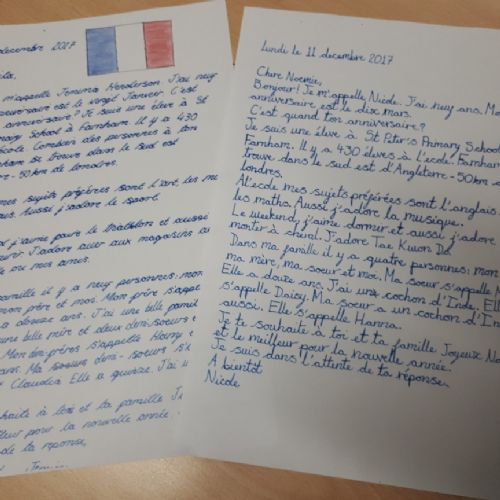 decembre 2017
m'appelle Jemima Henderson. J'ai neuf
anniversaire est le vingt Janvier. C'est
anniversaire? Je suis une élève à St
School à Farnham. Il y a 430
se trouve dans le sud est
50km de londres.
mes sujets préférés sont l'art, les
Aussi j'adore le sport.
j'aime
et aussi
J'adore
aux magasins
ou mes amis.
famille il y a neuf personnes: mon
mon père et moi. Mon
s'appelle
a
ans. J'ai une belle
une belle mère et deux demi-soeurs
s'appelle Harry
ans. Ma
demi-soeurs
Claudia. Elle a quinze. J'ai
à toi et ta famille
pour la nouvelle année.
de ta réponse,
Lundi le 11 decembre 2017
Chere Noemie,
Bonjour! Je m'appelle Nicole. J'ai neuf ans. Mon
anniversaire est le dix mars.
C'est quand ton anniversaire?
Je suis une élève à St Peter's Primary School
Farnham. Il y a 430 élèves à L'ecole. Farnham
trouve dans le sud est d'Angleterre - 50km
londres.
Al'école mes sujets préférées sont l'anglais
les maths. Aussi j'adore la musique.
Le weekend, j'aime dormer et aussi j'adore
monter à cheval. J'adore Tae Kwon Do.
Dans ma famille il y a quatre personnes: mon
ma mère, ma soeur et moi. Ma soeur s'appelle
Elle a douze ans. J'ai une cochon d'Inde. Elle
s'appelle Daisy. Ma soeur a un cochon d'In
aussi. Elle s'appelle Hanna.
Je te souhaite à toi et ta famille Joyeux
et le meilleur pour la nouvelle année.
Je suis dans L'attente de ta réponse.
A bientôt
Nicole